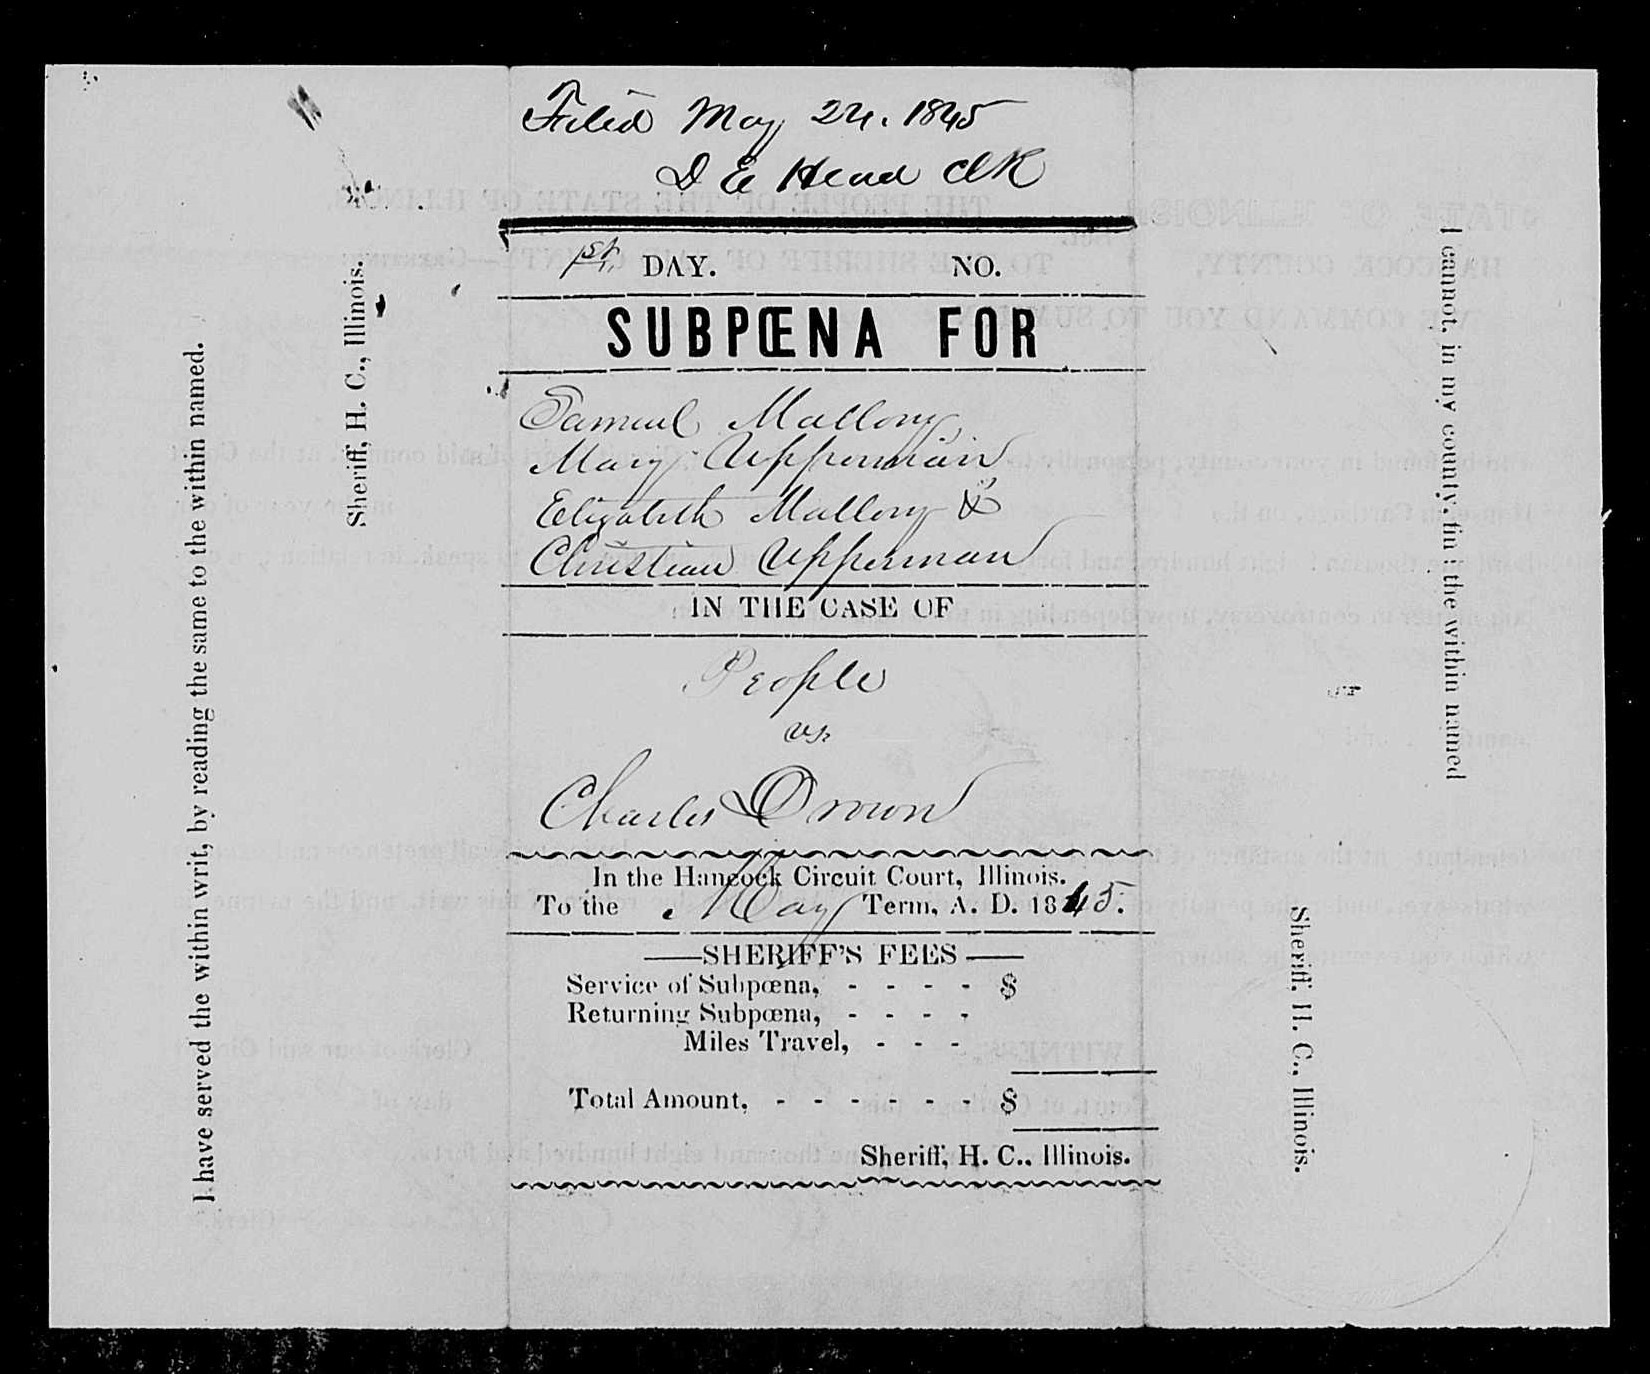 I have served the within writ, by reading the same to the within named.
Sheriff, H. C., Illinois.
Filed May 24. 1845
D E Head Clk
1st DAY. NO.
SUBPŒNA FOR
Samuel Mallory,
Mary Upperman
Elizabeth Mallory &
Christian Upperman
IN THE CASE OF
People
vs
Charles Drown
In the Hancock Circuit Court, Illinois.
To the May Term, A. D. 1845.
SHERIFF'S FEES
Service of Subpœna, - - - - $
Returning Subpœna, - - - -
Miles Travel, - - -
Total Amount, - - - - - - $
Sheriff, H. C., Illinois.
I cannot, in my county, fin the within named
Sheriff, H. C., Illinois.